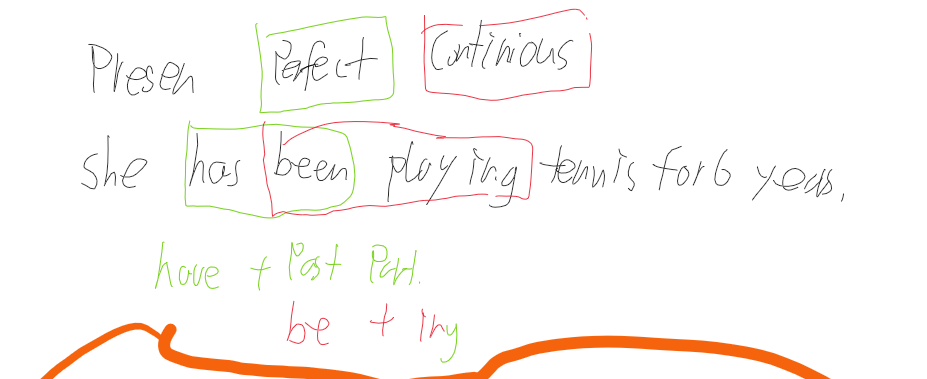 Presen Perfect Continious
she has been playing tennis for 6 years.
have + Past Part.
be + ing